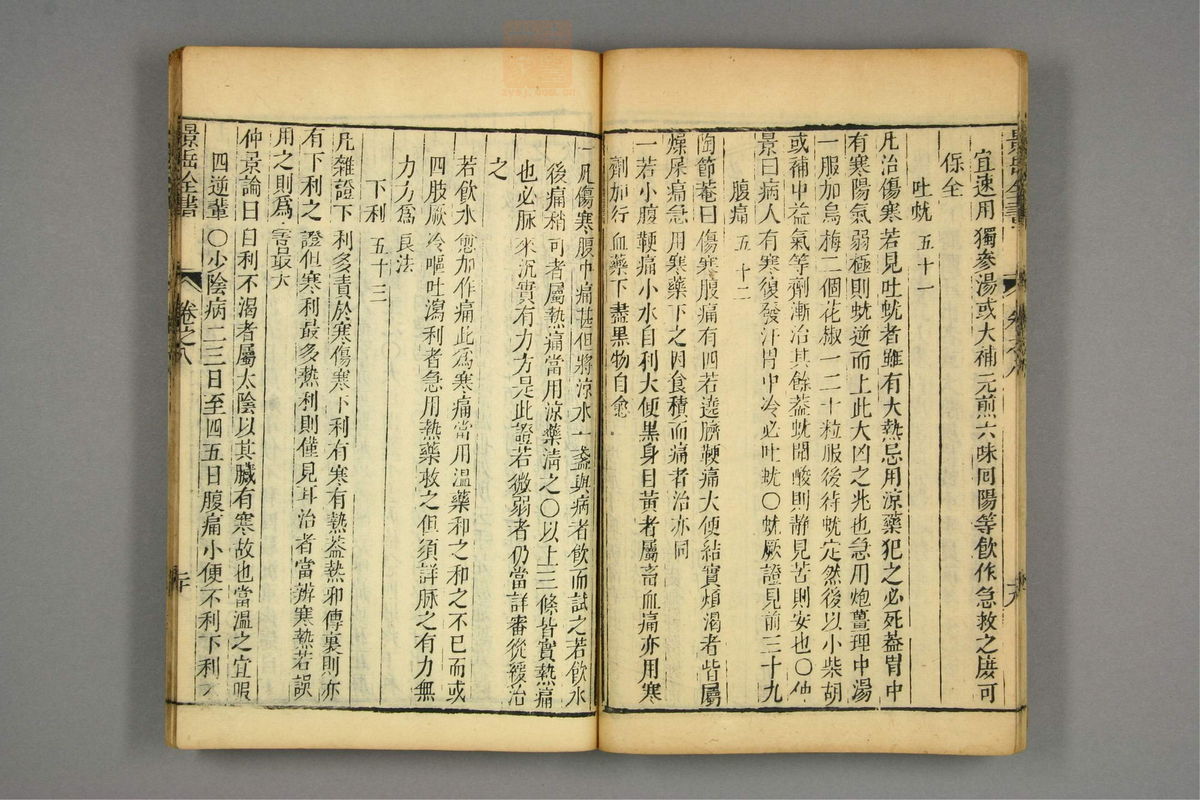 宜速用獨參湯或大補元煎六味回陽等飲作急救之庶可
保全
吐蚘 五十一
凡治傷寒若見吐蚘者雖有大熱忌用涼藥犯之必死蓋胃中
有寒陽氣弱極則蚘逆而上此大凶之兆也急用炮薑理中湯
一服加烏梅二個花椒一二十粒服後待蚘定然後以小柴胡
或補中益氣等劑漸治其餘蓋蚘聞酸則靜見苦則安也〇仲
景曰病人有寒復發汗胃中冷必吐蚘〇蚘厥證見前三十九
腹痛 五十二
陶節菴曰傷寒腹痛有四若遶臍鞕痛大便結實煩渴者皆屬
燥屎痛急用寒藥下之因食積而痛者治亦同
一若小腹鞕痛小水自利大便黒身目黃者屬畜血痛亦用寒
劑加行血藥下盡黒物自愈
一凡傷寒腹中痛甚但將涼水一盞與病者飲而試之若飲水
後痛稍可者屬熱痛當用涼藥清之〇以上三條皆實熱痛
也必脉來沉實有力方是此證若微弱者仍當詳審從緩治
之
若飲水愈加作痛此爲寒痛當用温藥和之和之不已而或
四肢厥冷嘔吐瀉利者急用熱藥救之但須詳脉之有力無
力方爲良法
下利 五十三
凡雜證下利多責於寒傷寒下利有寒有熱蓋熱邪傳裏則亦
有下利之證但寒利最多熱利則僅見耳治者當辨寒熱若誤
用之則爲害最大
仲景論曰自利不渴者屬太陰以其臟有寒故也當溫之宜服
四逆輩〇少陰病二三日至四五日腹痛小便不利下利
景岳全書
卷之八
二十